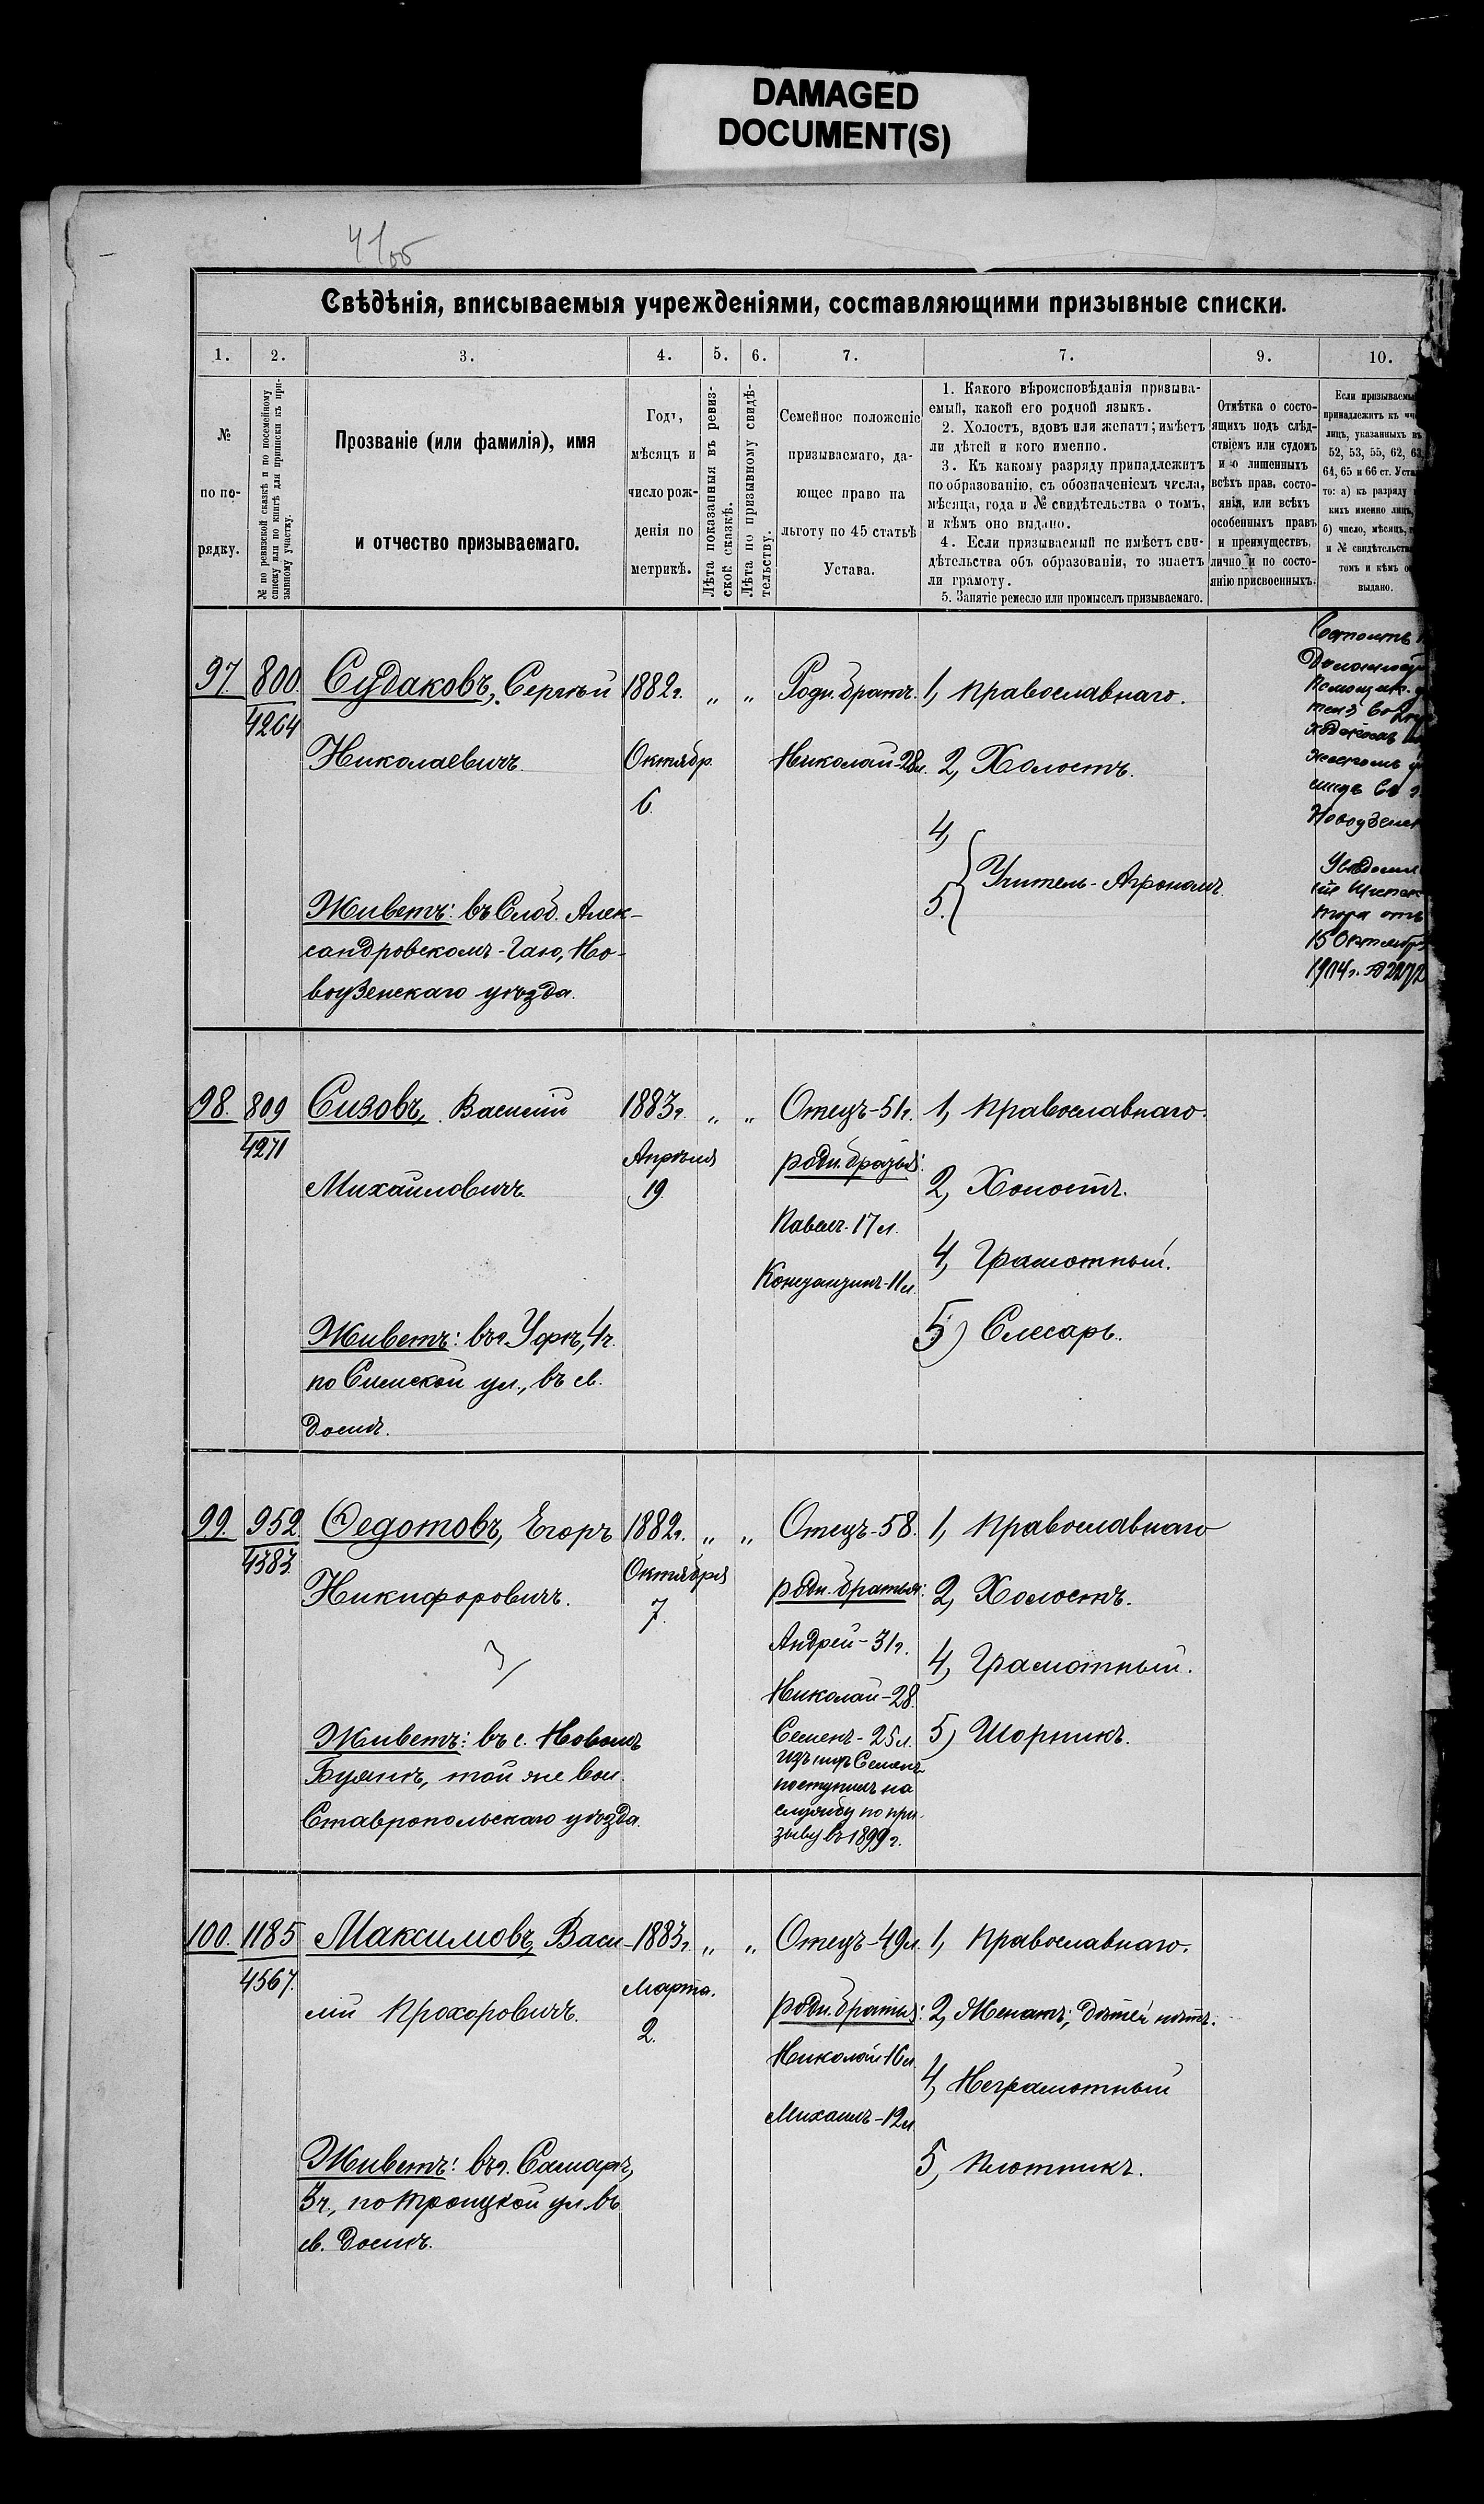 DAMAGED
DOCUMENT(S)
41об
Свѣдѣнія, вписываемыя учрежденіями, составляющими призывные списки.
1. 2. 3. 4. 5. 6. 7. 7. 9. 10.
№
по по-
рядку.
№ по ревизской сказкѣ и по посемейному
списку или по книгѣ для приписки къ при-
зывному участку.
Прозваніе (или фамилія), имя
и отчество призываемаго.
Годъ,
мѣсяцъ и
число рож-
денія по
метрикѣ.
Лѣта показанныя въ ревиз-
ской сказкѣ.
Лѣта по призывному свидѣ-
тельству.
Семейное положеніе
призываемаго, да-
ющее право на
льготу по 45 статьѣ
Устава.
1. Какого вѣроисповѣданія призыва-
емый, какой его родной языкъ.
2. Холостъ, вдовъ или женатъ; имѣетъ
ли дѣтей и кого именно.
3. Къ какому разряду принадлежитъ
по образованію, съ обозначеніемъ числа,
мѣсяца, года и № свидѣтельства о томъ,
и кѣмъ оно выдано.
4. Если призываемый не имѣетъ сви-
дѣтельства объ образованіи, то знаетъ
ли грамоту.
5. Занятіе ремесло или промыселъ призываемаго.
Отмѣтка о состо-
ящихъ подъ слѣд-
ствіемъ или судомъ
и о лишенныхъ
всѣхъ прав, состо-
янія, или всѣхъ
особенныхъ правъ
и преимуществъ,
лично и по состо-
янію присвоенныхъ.
Если призываемы
принадлежитъ къ чи
лицъ, указанныхъ въ
52, 53, 55, 62, 63,
64, 65 и 66 ст. Уста
то: а) къ разряду
кихъ именно лицъ,
б) число, мѣсяцъ,
и № свидѣтельства
томъ и кѣмъ о
выдано.
97. 800. Судаковъ, Сергѣй 1882г. „ „ Родн. братъ. 1, Православнаго.
4264
Николаевичъ. Октябр. Николай-28л. 2, Холостъ.
6.
4,
5. Учитель-Агрономъ.
Живетъ: въ Слоб. Алек-
сандровскомъ-Гаю, Но-
воузенскаго уѣзда.
Состоитъ
въ
Новоузенск
тора отъ
15 Октября
1904г. №2272
98. 809 Сизовъ, Василій 1883г. „ „ Отецъ-51г. 1, Православнаго.
4271
Апрѣля родн. братья:
Михаиловичъ. 19. 2, Холостъ.
Павелъ-17л.
4, Грамотный.
Константинъ-11л.
5) Слесарь.
Живетъ: въ г. Уфѣ, 4ч.
по Симской ул., въ св.
домѣ.
99. 952. Федотовъ, Егоръ 1882г. „ „ Отецъ-58. 1, Православнаго
4383. Октября
Никифоровичъ. 7. родн. братья: 2, Холостъ.
Андрей-31г.
4, Грамотный.
Николай-28.
Семенъ-25л. 5) Шорникъ.
Изъ нихъ Семенъ
поступилъ на
службу по при-
зыву въ 1899г.
Живетъ: въ с. Новомъ
Буянѣ, той же вол.
Ставропольскаго уѣзда.
100. 1185 Максимовъ, Васи- 1883г. „ „ Отецъ-49л. 1, Православнаго.
4567. Марта.
лій Прохоровичъ. 2. родн. братья: 2, Женатъ; дѣтей нѣтъ.
Николай-16л.
4, Неграмотный
Михаилъ-12л.
5, Плотникъ.
Живетъ: въ г. Самарѣ,
3ч., по Троицкой ул. въ
св. домѣ.